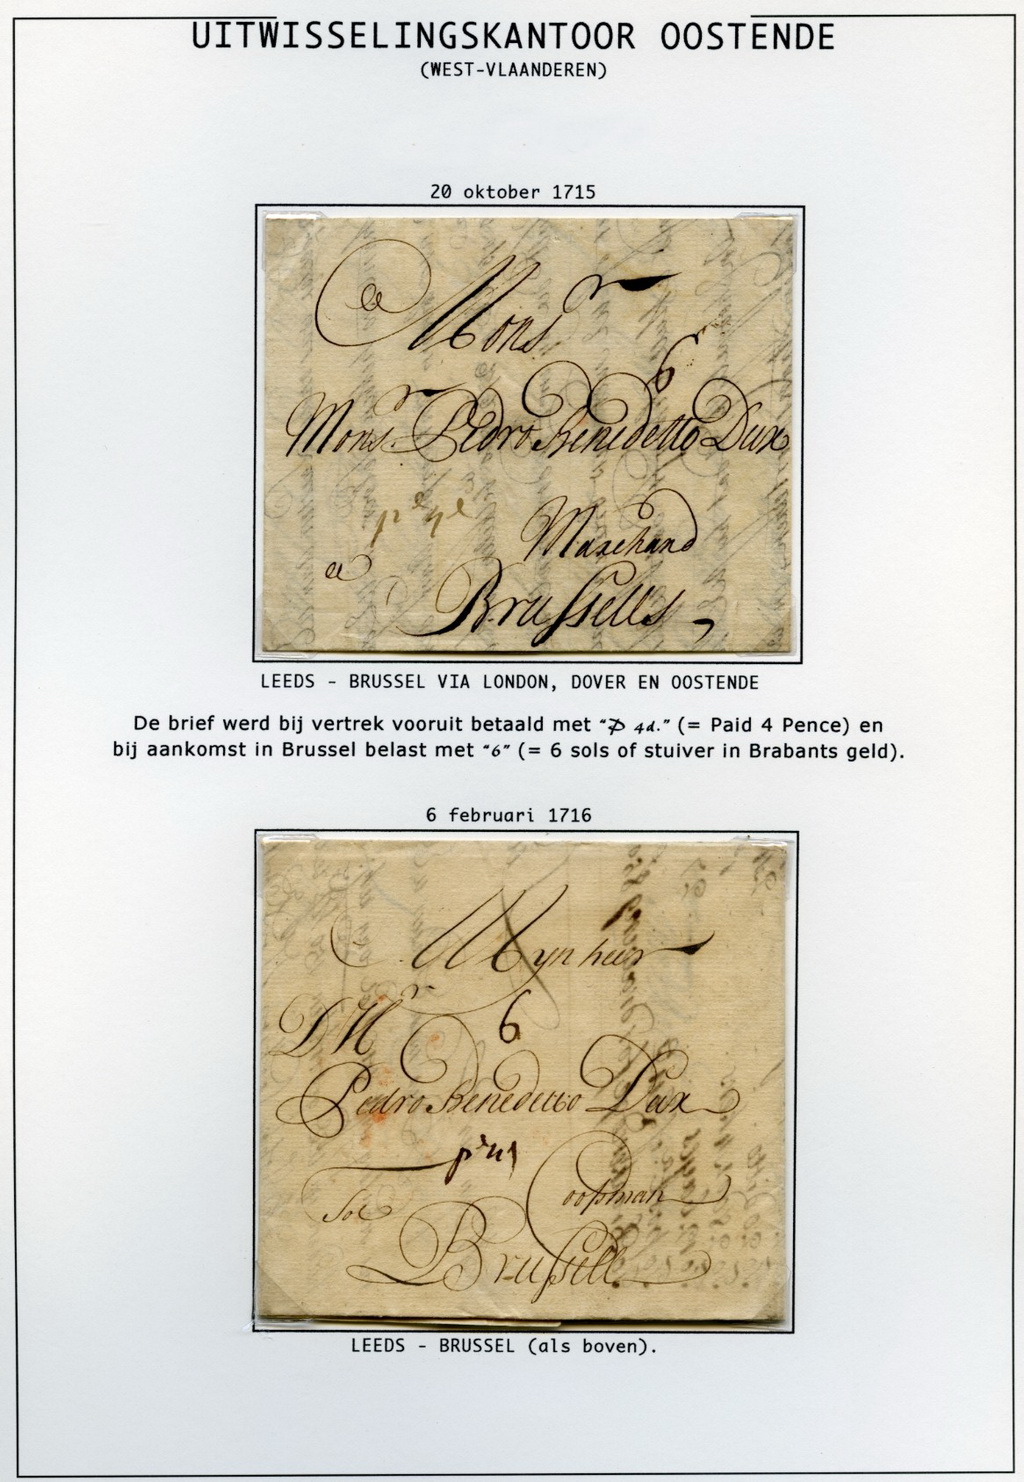 UITWISSELINGSKANTOOR OOSTENDE
(WEST-VLAANDEREN)
20 oktober 1715
a Mons r
6
Mons r Pedro Benedetto Dux
pd 4d
Marchand
a
Brussells
LEEDS - BRUSSEL VIA LONDON, DOVER EN OOSTENDE
De brief werd bij vertrek vooruit betaald met "P 4d." (= Paid 4 Pence) en
bij aankomst in Brussel belast met "6" (= 6 sols of stuiver in Brabants geld).
6 februari 1716
Mijn heer
6
D Hr
Pedro Benedetto Dux
Coopman
Tot
Brussell
LEEDS - BRUSSEL (als boven).